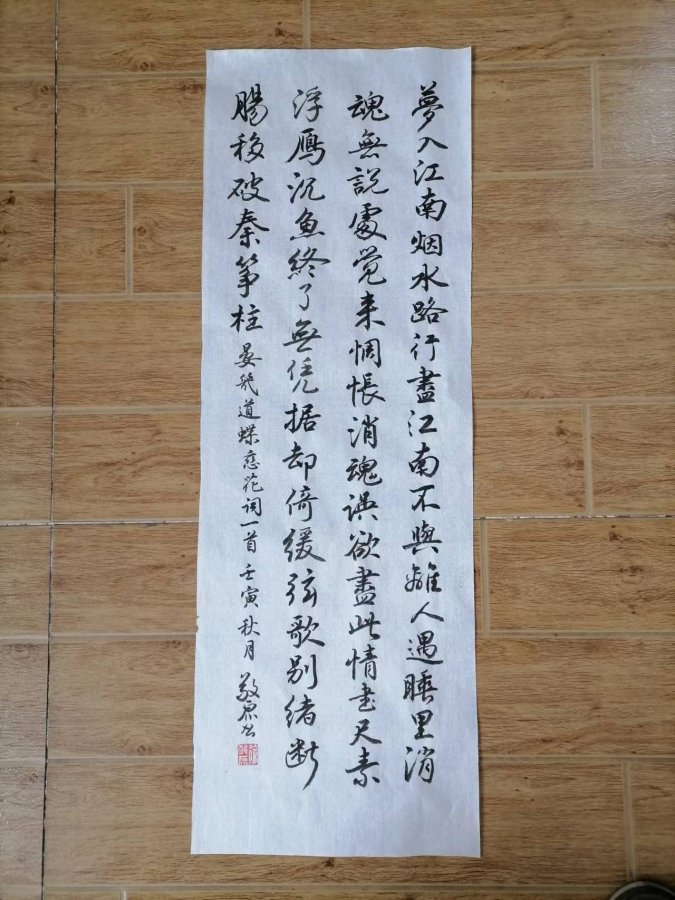 夢入江南烟水路行盡江南不與離人遇睡里消
魂無說處觉来惆悵消魂誤欲盡此情書尺素
浮鴈沉魚終了無凭据却倚緩弦歌别緒断
腸移破秦筝柱 晏幾道蝶恋花词一首 壬寅秋月 敬原